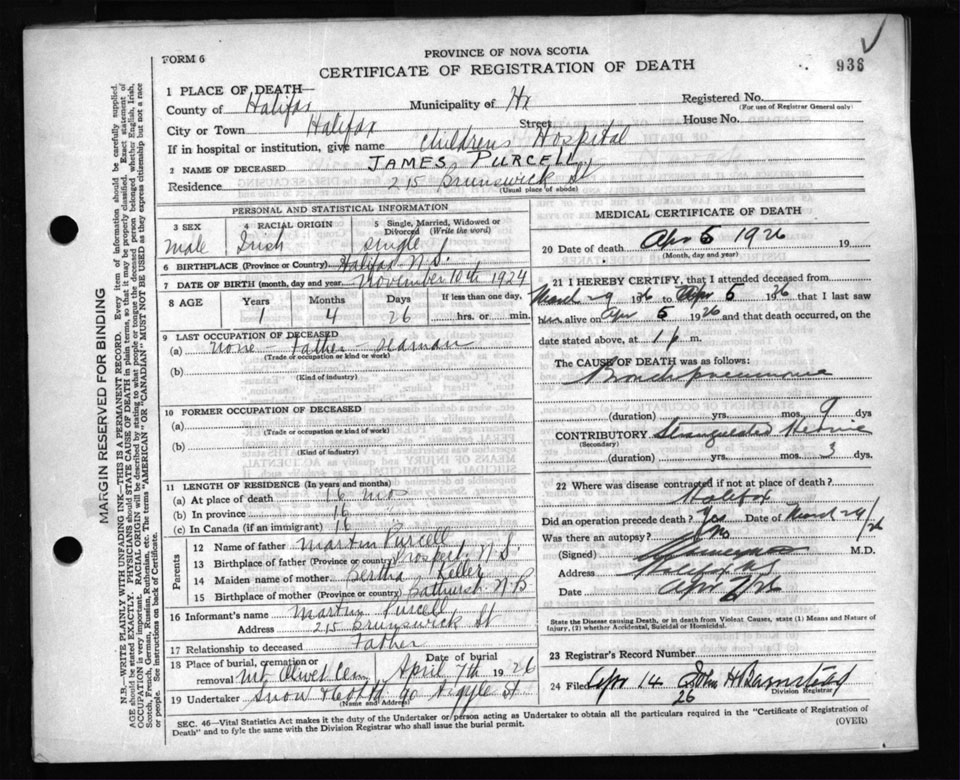 FORM 6
PROVINCE OF NOVA SCOTIA
CERTIFICATE OF REGISTRATION OF DEATH
936
1 PLACE OF DEATH—
County of Halifax Municipality of Hx Registered No.
(For use of Registrar General only)
City or Town Halifax Street House No.
If in hospital or institution, give name Childrens Hospital
2 NAME OF DECEASED JAMES PURCELL
Residence 215 Brunswick St
(Usual place of abode)
PERSONAL AND STATISTICAL INFORMATION
3 SEX 4 RACIAL ORIGIN 5 Single, Married, Widowed or Divorced (Write the word)
male Irish single
6 BIRTHPLACE (Province or Country) Halifax N.S.
7 DATE OF BIRTH (month, day and year) November 10th 1924
8 AGE Years Months Days If less than one day,
1 4 26 hrs. or min.
9 LAST OCCUPATION OF DECEASED
(a) none - Father - seaman
(Trade or occupation or kind of work)
(b)
(Kind of industry)
10 FORMER OCCUPATION OF DECEASED
(a)
(Trade or occupation or kind of work)
(b)
(Kind of industry)
11 LENGTH OF RESIDENCE (In years and months)
(a) At place of death 16 mos
(b) In province 16 "
(c) In Canada (if an immigrant) 16
Parents
12 Name of father Martin Purcell
13 Birthplace of father (Province or country) Prospect, N.S.
14 Maiden name of mother Bertha Keller
15 Birthplace of mother (Province or country) Bathurst N.B
16 Informant's name Martin Purcell
Address 215 Brunswick St
17 Relationship to deceased Father
18 Place of burial, cremation or removal Mt. Olivet Cem Date of burial April 7th 1926
19 Undertaker Snow & Co Ltd 90 Argyle St
(Name and Address)
MEDICAL CERTIFICATE OF DEATH
20 Date of death Apr 5 1926 19
(Month, day and year)
21 I HEREBY CERTIFY, that I attended deceased from
March 29 1926 to Apr 5 1926 that I last saw
him alive on Apr 5 1926 and that death occurred, on the
date stated above, at 1 p m.
The CAUSE OF DEATH was as follows:
Bronchopneumonia
(duration) yrs. mos. 9 dys
CONTRIBUTORY Strangulated Hernia
(Secondary)
(duration) yrs. mos. 3 dys.
22 Where was disease contracted if not at place of death?
Halifax
Did an operation precede death? Yes Date of March 29/26
Was there an autopsy? No
(Signed) M.D.
Address Halifax NS
Date Apr 7/26
State the Disease causing Death, or in death from Violent Causes, state (1) Means and Nature of
Injury, (2) whether Accidental, Suicidal or Homicidal.
23 Registrar's Record Number
24 Filed Apr 14 26 John H Barnstead
Division Registrar
SEC. 46—Vital Statistics Act makes it the duty of the Undertaker or person acting as Undertaker to obtain all the particulars required in the "Certificate of Registration of
Death" and to fyle the same with the Division Registrar who shall issue the burial permit.
(OVER)
MARGIN RESERVED FOR BINDING
N.B.—WRITE PLAINLY WITH UNFADING INK—THIS IS A PERMANENT RECORD. Every item of information should be carefully supplied.
AGE should be stated EXACTLY. PHYSICIANS should STATE CAUSE OF DEATH in plain terms, so that it may be properly classified. Exact statement of
OCCUPATION is very important. RACIAL ORIGIN will be described by stating to what people or tongue the deceased person belonged whether English, Irish,
Scotch, French, German, Russian, Ruthenian, etc. The terms "AMERICAN" OR "CANADIAN" MUST NOT BE USED as they express citizenship but not a race
or people. See instructions on back of Certificate.